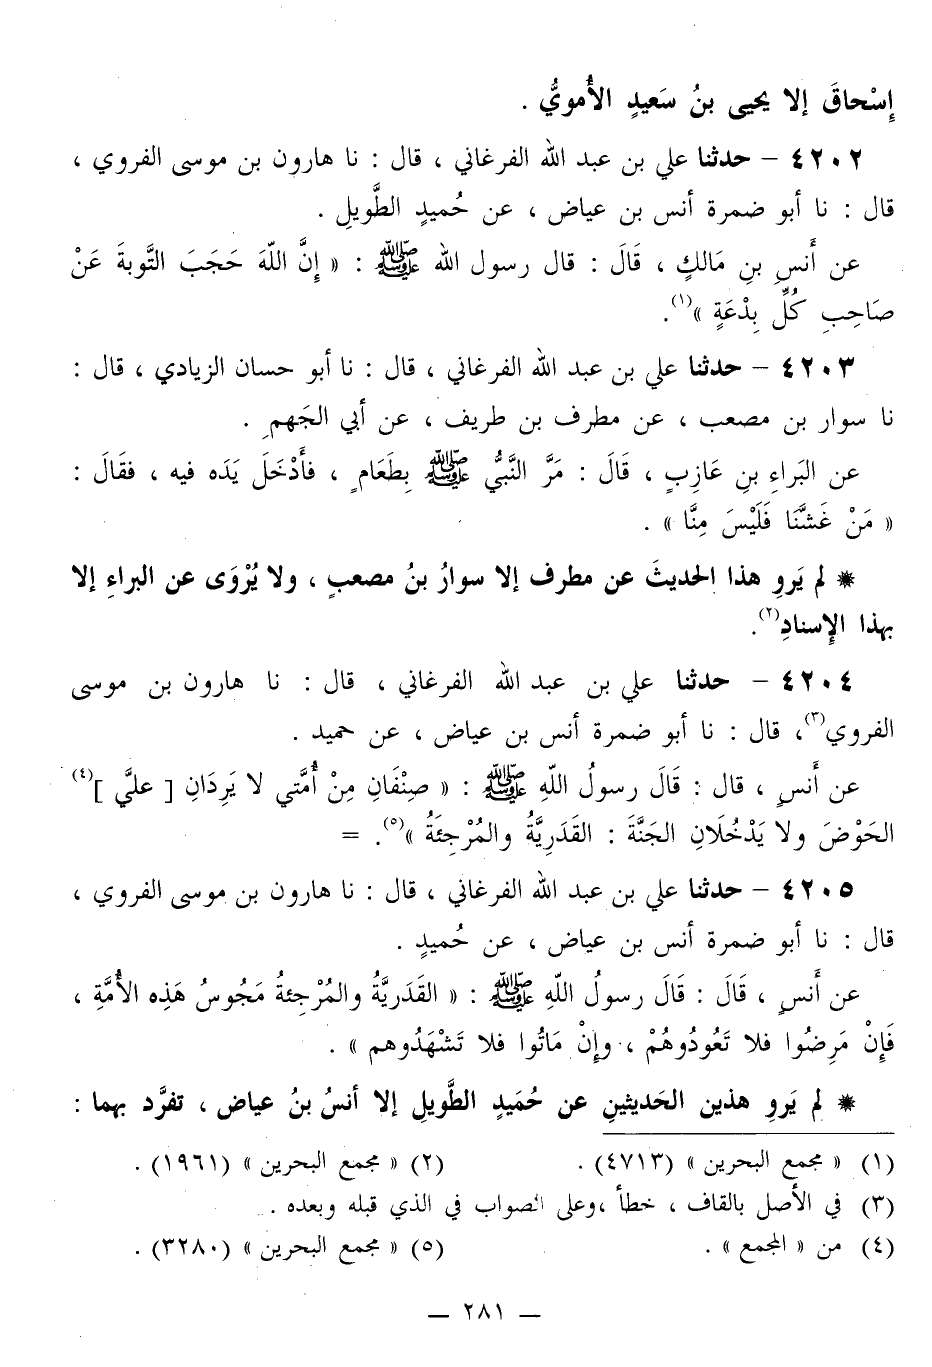 إِسْحاقَ إلا يحيى بنُ سَعيدٍ الأُمويُّ .
٤٢٠٢ – حدثنا علي بن عبد الله الفرغاني ، قال : نا هارون بن موسى الفروي ،
قال : نا أبو ضمرة أنس بن عياض ، عن حُميدٍ الطَّويلِ .
عن أَنسِ بنِ مَالكٍ ، قَالَ : قال رسول الله ﷺ : « إِنَّ اللّهَ حَجَبَ التَّوبةَ عَنْ
صَاحِبِ كُلِّ بِدْعَةٍ »(١).
٤٢٠٣ – حدثنا علي بن عبد الله الفرغاني ، قال : نا أبو حسان الزيادي ، قال :
نا سوار بن مصعب ، عن مطرف بن طريف ، عن أبي الجَهمِ .
عن البَراءِ بنِ عَازِبٍ ، قَالَ : مَرَّ النَّبيُّ ﷺ بِطَعَامٍ ، فأَدْخَلَ يَدَه فيه ، فقَالَ :
« مَنْ غَشَّنَا فَلَيْسَ مِنَّا » .
* لم يَروِ هذا الحديثَ عن مطرف إلا سوارُ بنُ مصعبٍ ، ولا يُرْوَى عن البراءِ إلا
بهذا الإِسنادِ(٢).
٤٢٠٤ – حدثنا علي بن عبد الله الفرغاني ، قال : نا هارون بن موسى
الفروي(٣)، قال : نا أبو ضمرة أنس بن عياض ، عن حميد .
عن أَنسٍ ، قال : قَالَ رسولُ اللّهِ ﷺ : « صِنْفَانِ مِنْ أُمَّتي لا يَرِدَانِ [ عليَّ ](٤)
الحَوْضَ ولا يَدْخُلَانِ الجَنَّةَ : القَدَرِيَّةُ والمُرْجِئَةُ »(٥). =
٤٢٠٥ – حدثنا علي بن عبد الله الفرغاني ، قال : نا هارون بن موسى الفروي ،
قال : نا أبو ضمرة أنس بن عياض ، عن حُميدٍ .
عن أَنسٍ ، قَالَ : قَالَ رسولُ اللّهِ ﷺ : « القَدَريَّةُ والمُرْجئةُ مَجُوسُ هَذِه الأُمَّةِ ،
فَإِنْ مَرِضُوا فلا تَعُودُوهُمْ ، وإِنْ مَاتُوا فلا تَشْهَدُوهم » .
* لم يَروِ هذين الحَديثينِ عن حُمَيدٍ الطَّويلِ إلا أنسُ بنُ عياض ، تفرَّد بهما :
(١) « مجمع البحرين » (٤٧١٣) .
(٢) « مجمع البحرين » (١٩٦١) .
(٣) في الأصل بالقاف ، خطأ ،وعلى الصواب في الذي قبله وبعده .
(٤) من « المجمع » .
(٥) « مجمع البحرين » (٣٢٨٠) .
– ٢٨١ –